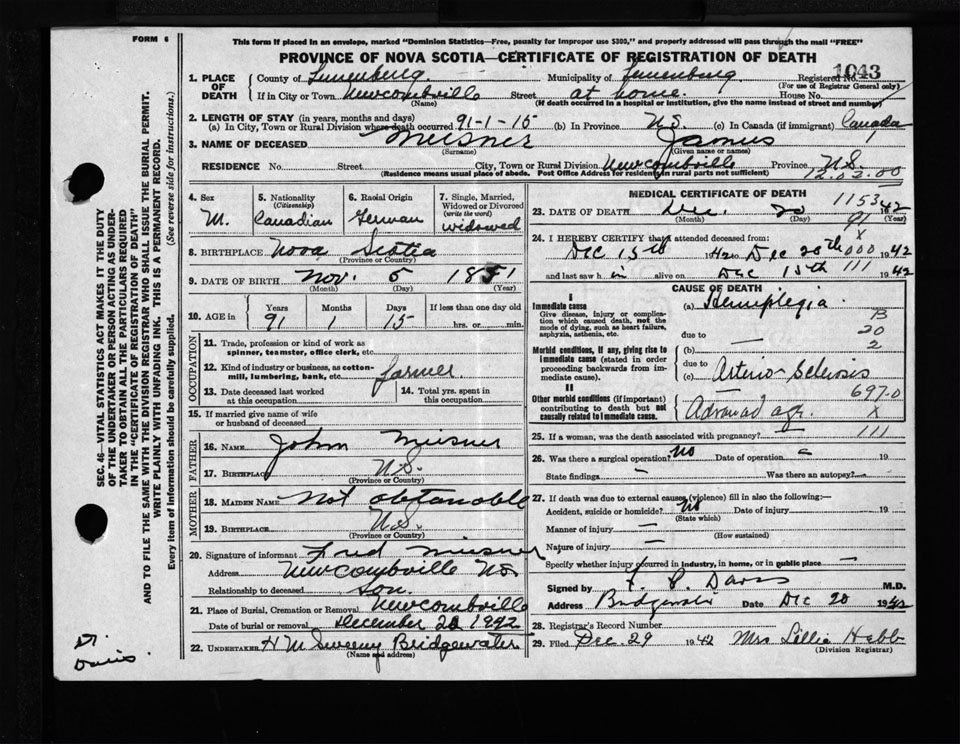 FORM 6
This form if placed in an envelope, marked "Dominion Statistics—Free, penalty for improper use $300," and properly addressed will pass through the mail "FREE"
PROVINCE OF NOVA SCOTIA—CERTIFICATE OF REGISTRATION OF DEATH
1043
1. PLACE OF DEATH County of Lunenburg Municipality of Lunenburg Registered No.
(For use of Registrar General only)
If in City or Town Newcombville Street at home House No.
(Name) (If death occurred in a hospital or institution, give the name instead of street and number)
2. LENGTH OF STAY (in years, months and days)
(a) In City, Town or Rural Division where death occurred 91-1-15 (b) In Province N.S. (c) In Canada (if immigrant) Canada
3. NAME OF DECEASED Meisner James
(Surname) (Given name or names)
RESIDENCE No. Street City, Town or Rural Division Newcombville Province N.S.
(Residence means usual place of abode. Post Office Address for residents in rural parts not sufficient) 12.02.00
4. Sex M.
5. Nationality (Citizenship) Canadian
6. Racial Origin German
7. Single, Married, Widowed or Divorced (write the word) widowed
8. BIRTHPLACE Nova Scotia
(Province or Country)
9. DATE OF BIRTH Nov. 5 1851
(Month) (Day) (Year)
10. AGE in Years 91 Months 1 Days 15 If less than one day hrs. or min.
OCCUPATION
11. Trade, profession or kind of work as spinner, teamster, office clerk, etc.
12. Kind of industry or business, as cotton-mill, lumbering, bank, etc. farmer
13. Date deceased last worked at this occupation
14. Total yrs. spent in this occupation
15. If married give name of wife or husband of deceased
FATHER
16. NAME John Meisner
17. BIRTHPLACE N.S.
(Province or Country)
MOTHER
18. MAIDEN NAME Not obtanoble
19. BIRTHPLACE N.S.
(Province or Country)
20. Signature of informant Fred Meisner
Address Newcombville N.S.
Relationship to deceased son.
21. Place of Burial, Cremation or Removal Newcombville
Date of burial or removal December 22 1942
22. UNDERTAKER H M Sweeny Bridgewater
Name and address)
MEDICAL CERTIFICATE OF DEATH
1153
23. DATE OF DEATH Dec. 20 1942
(Month) (Day) (Year)
91
X
24. I HEREBY CERTIFY that I attended deceased from:
Dec 15th 1942 to Dec 20th 000 1942
and last saw h im alive on Dec 15th 111 1942
CAUSE OF DEATH
I
Immediate cause
Give disease, injury or complication which caused death, not the mode of dying, such as heart failure, asphyxia, asthenia, etc.
(a) Hemiplegia
B
20
2
due to
Morbid conditions, if any, giving rise to immediate cause (stated in order proceeding backwards from immediate cause).
(b) —
due to
(c) Arterio-Sclerosis
697.0
X
II
Other morbid conditions (if important) contributing to death but not causally related to immediate cause.
Advanced age.
25. If a woman, was the death associated with pregnancy? — 111
26. Was there a surgical operation? no Date of operation — 19
State findings — Was there an autopsy? —
27. If death was due to external causes (violence) fill in also the following:—
Accident, suicide or homicide? no Date of injury 19
(State which)
Manner of injury —
(How sustained)
Nature of injury —
Specify whether injury occurred in industry, in home, or in public place —
Signed by Davis M.D.
Address Bridgewater Date Dec 20 1942
28. Registrar's Record Number
29. Filed Dec. 29 1942 Mrs Lillia Hebb
(Division Registrar)
SEC. 46—VITAL STATISTICS ACT MAKES IT THE DUTY
OF THE UNDERTAKER OR PERSON ACTING AS UNDERTAKER TO OBTAIN ALL THE PARTICULARS REQUIRED
IN THE "CERTIFICATE OF REGISTRATION OF DEATH"
AND TO FILE THE SAME WITH THE DIVISION REGISTRAR WHO SHALL ISSUE THE BURIAL PERMIT.
WRITE PLAINLY WITH UNFADING INK. THIS IS A PERMANENT RECORD.
Every item of information should be carefully supplied. (See reverse side for instructions.)
Davis.